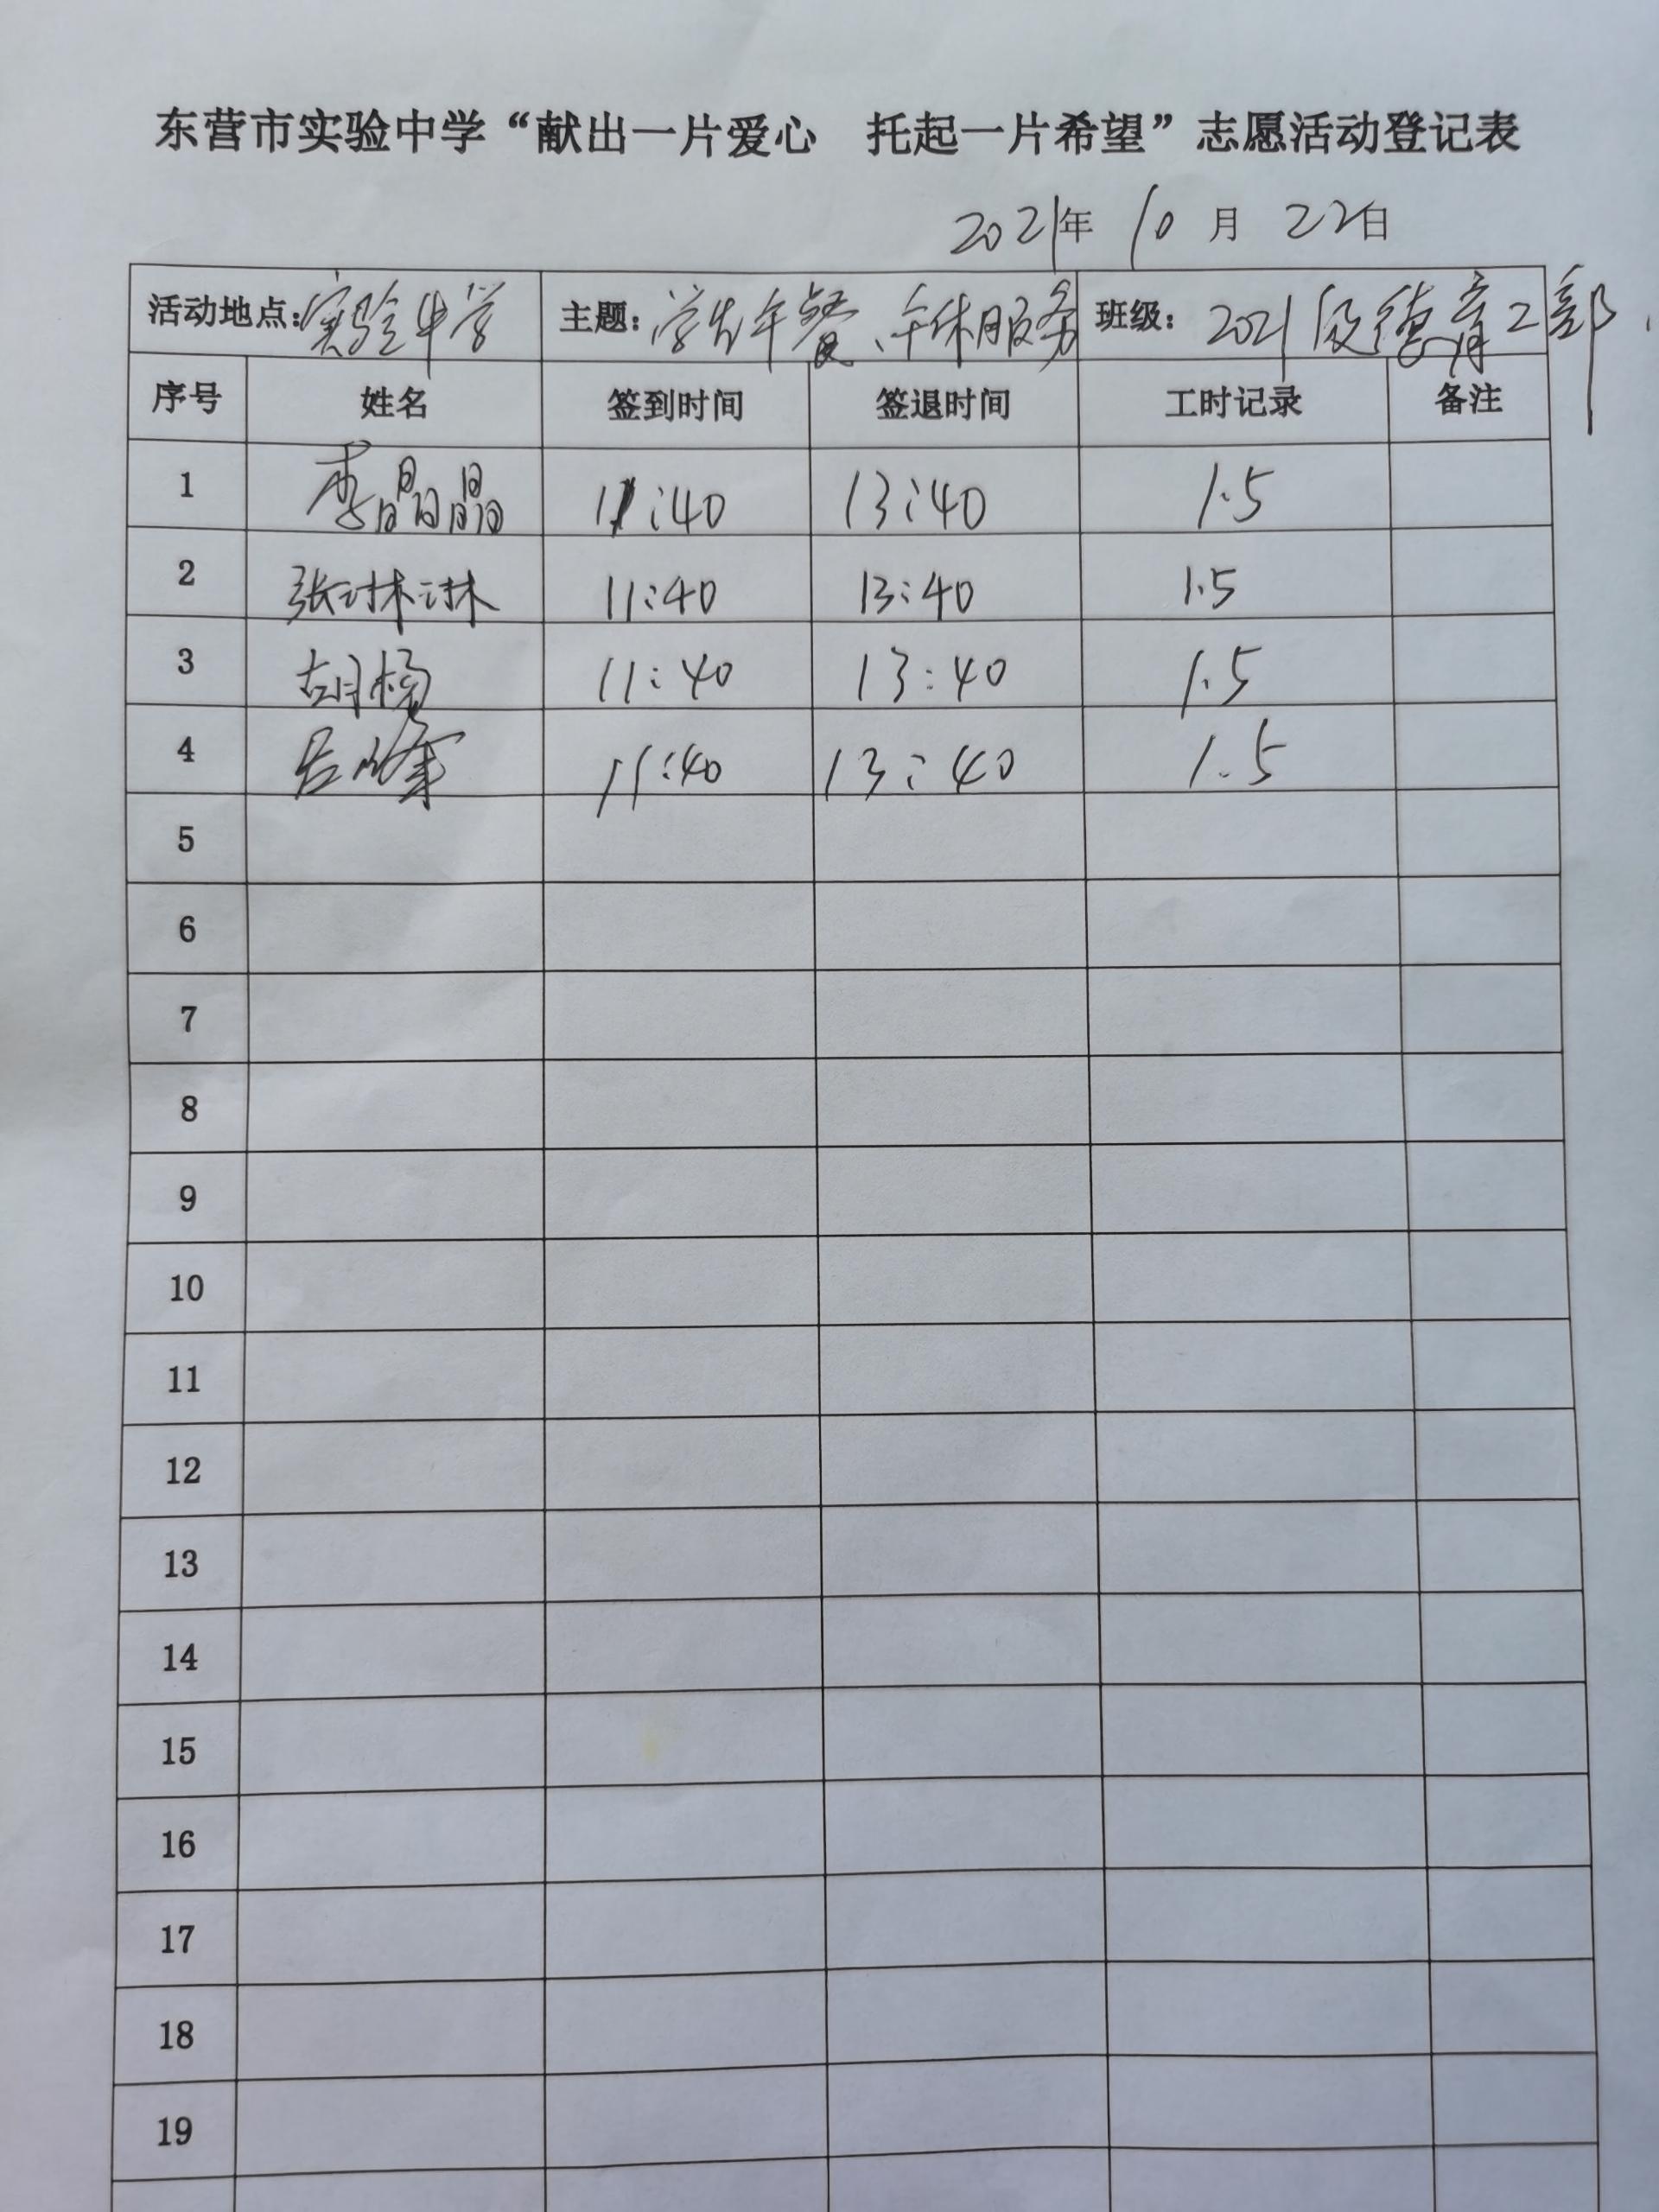 东营市实验中学“献出一片爱心 托起一片希望”志愿活动登记表
2021年 10 月 22日
活动地点:实验中学 主题:学生午餐、午休服务 班级:2021级德育2部
序号 姓名 签到时间 签退时间 工时记录 备注
1 李晶晶 11:40 13:40 1.5
2 张琳琳 11:40 13:40 1.5
3 胡杨 11:40 13:40 1.5
4 吕峰 11:40 13:40 1.5
5
6
7
8
9
10
11
12
13
14
15
16
17
18
19